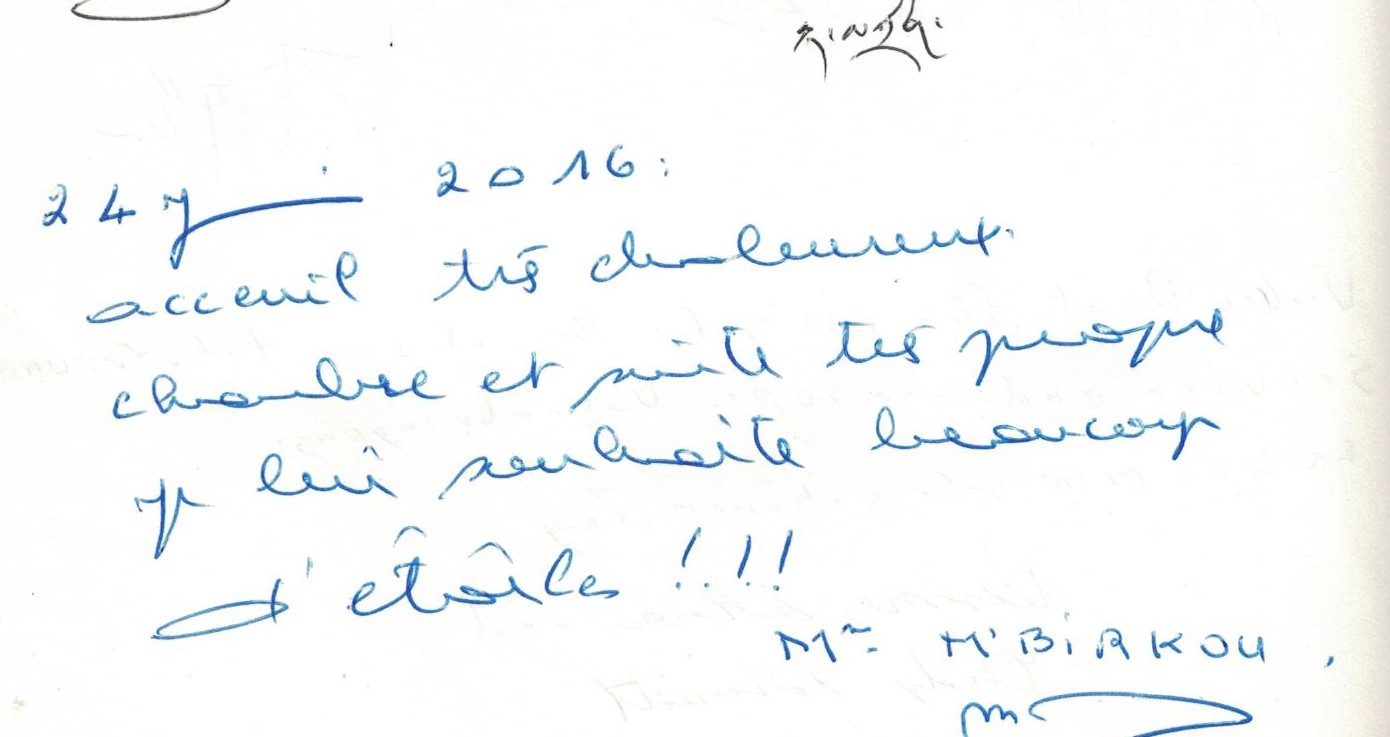 24 juin 2016:
acceuil très chaleureux.
chambre et suite très propre
je lui souhaite beaucoup
d'étoiles !!!
Mme M'BIRKOU.